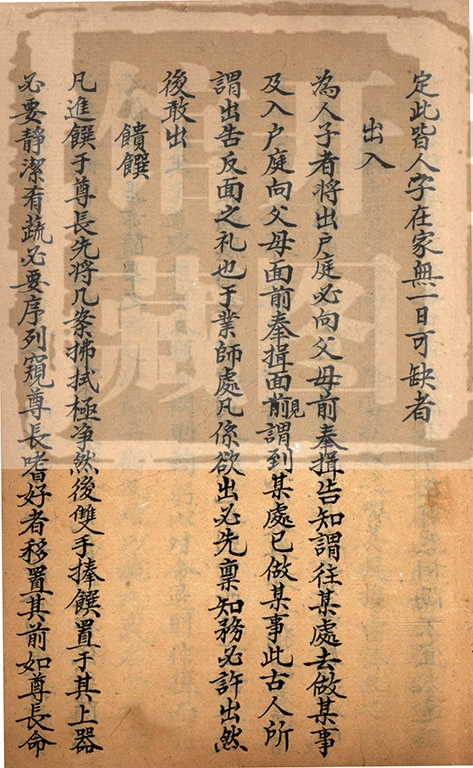 定此皆人字在家無一日可缺者
出入
為人子者將出戶庭必向父母前奉揖告知謂往某處去做某事
及入戶庭向父母面前奉揖面前見謂到某處已做某事此古人所
謂出告反面之礼也于業師處凡係欲出必先禀知務必許出然
後敢出
饋饌
凡進饌于尊長先將几案拂拭極净然後雙手捧饌置于其上器
必要靜潔肴蔬必要序列窺尊長嗜好者移置其前如尊長命